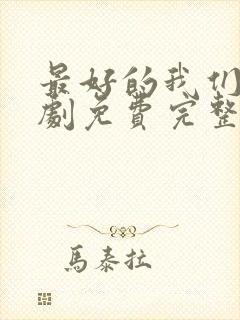 最好的我们
劇免費完整
馬泰拉